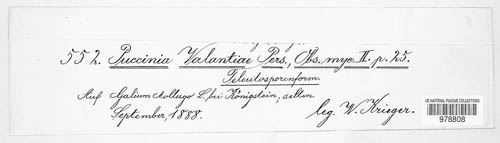 552. Puccinia Valantiae Pers., Obs. myc. II. p. 25.
Teleutosporenform.
Auf Galium Mollugo L. bei Königstein, selten.
September, 1888.
leg. W. Krieger.
US NATIONAL FUNGUS COLLECTIONS
978808